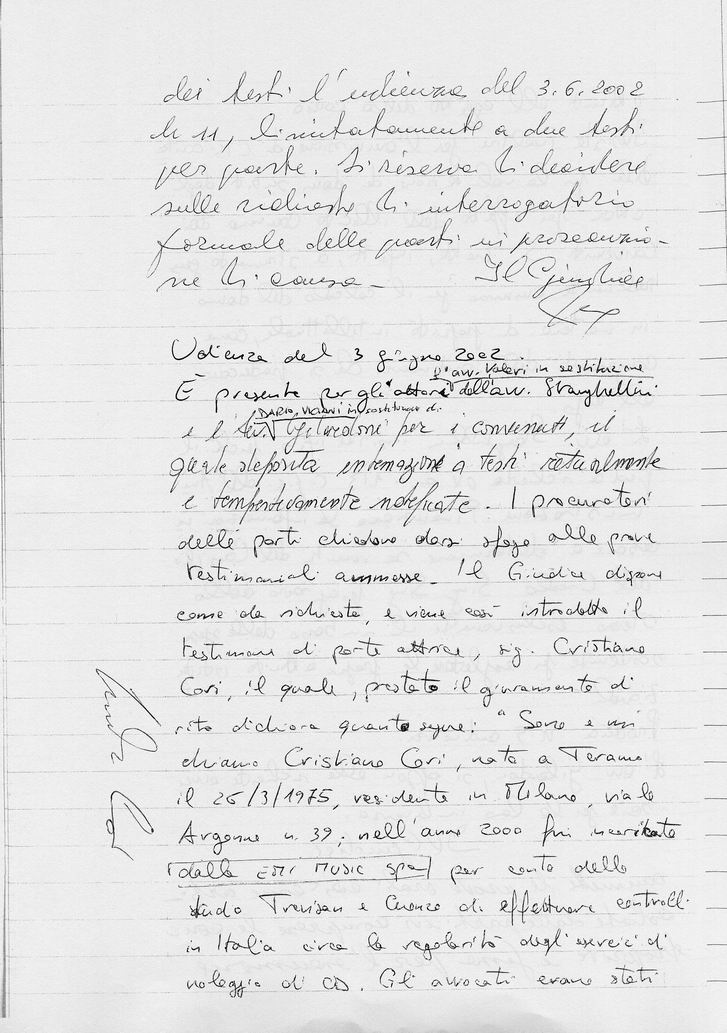 dei testi l'udienza del 3.6.2002
h 11, limitatamente a due testi
per parte. Si riserva di decidere
sulle richieste di interrogatorio
formale delle parti in prosecuzio-
ne di causa – Il Giudice
Udienza del 3 giugno 2002.
l'avv. Valeri in sostituzione
È presente per gli attori dell'avv. Stanghellini
DARIO VICIANI in sostituzione di
e l'Avv. per i convenuti, il
quale deposita intimazione a testi ritualmente
e tempestivamente notificate. I procuratori
delle parti chiedono darsi sfogo alle prove
testimoniali ammesse – Il Giudice dispone
come da richieste, e viene così introdotto il
testimone di parte attrice, sig. Cristiano
Cori, il quale, prestato il giuramento di
rito dichiara quanto segue: "Sono e mi
chiamo Cristiano Cori, nato a Teramo
il 25/3/1975, residente in Milano, viale
Argonne n. 39; nell'anno 2000 fui incaricato
dalla EMI MUSIC spa per conto dello
studo Trevisan e Cuonzo di effettuare controlli
in Italia circa la regolarità degli esercizi di
noleggio di CD. Gli avvocati erano stati